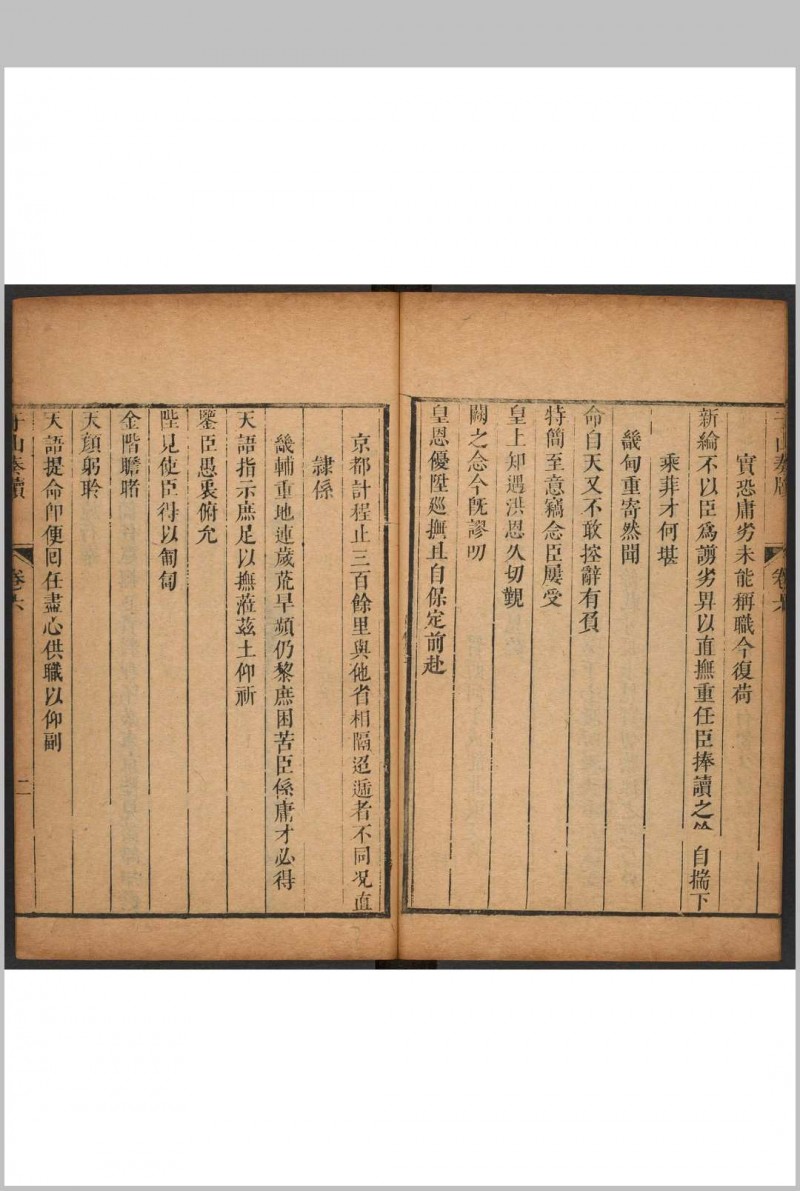 于山奏牘
卷六
實恐庸劣未能稱職今復荷
新綸不以臣爲謭劣畀以直撫重任臣捧讀之餘自揣下
乘菲才何堪
畿甸重寄然聞
命自天又不敢控辭有負
特簡至意竊念臣屢受
皇上知遇洪恩久切覲
闕之念今旣謬叨
皇恩優陞巡撫且自保定前赴
京都計程止三百餘里與他省相隔迢遞者不同况直
隷係
畿輔重地連歲荒旱頻仍黎庶困苦臣係庸才必得
天語指示庶足以撫蒞兹土仰祈
鑒臣愚衷俯允
陛見使臣得以匍匐
金階瞻睹
天顔躬聆
天語提命卽便囘任盡心供職以仰副
于山奏牘
卷六
二